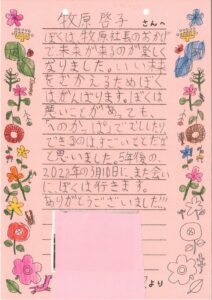 牧原 啓子さんへ
ぼくは牧原社長のおかげ
で未来が来るのが楽しく
なりました。いいいま
をむかえるためぼく
はがんばります。ぼくは
悪いことがあっても、
へのかっぱってでしたり
できるのはすごいことだな
と思いました。5年後の、
2022年の3月10日にまた会い
にぼくは行きます。
ありがとうございました!!!
より